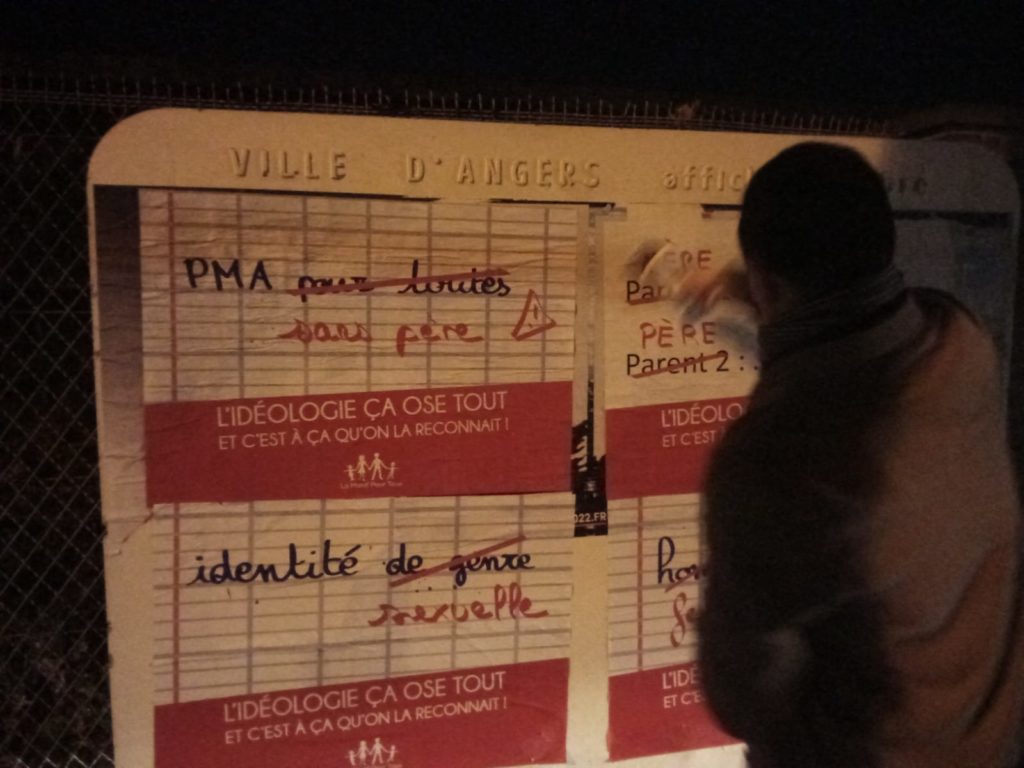 VILLE D'ANGERS
PMA pour toutes
sans père
L'IDÉOLOGIE ÇA OSE TOUT
ET C'EST À ÇA QU'ON LA RECONNAIT !
La Manif Pour Tous
PÈRE
Parent 2 :
L'IDÉOLO
ET C'EST
022.FR
identité de genre
sexuelle
L'IDÉOLOGIE ÇA OSE TOUT
ET C'EST À ÇA QU'ON LA RECONNAIT !
L'IDÉ
ET C'E